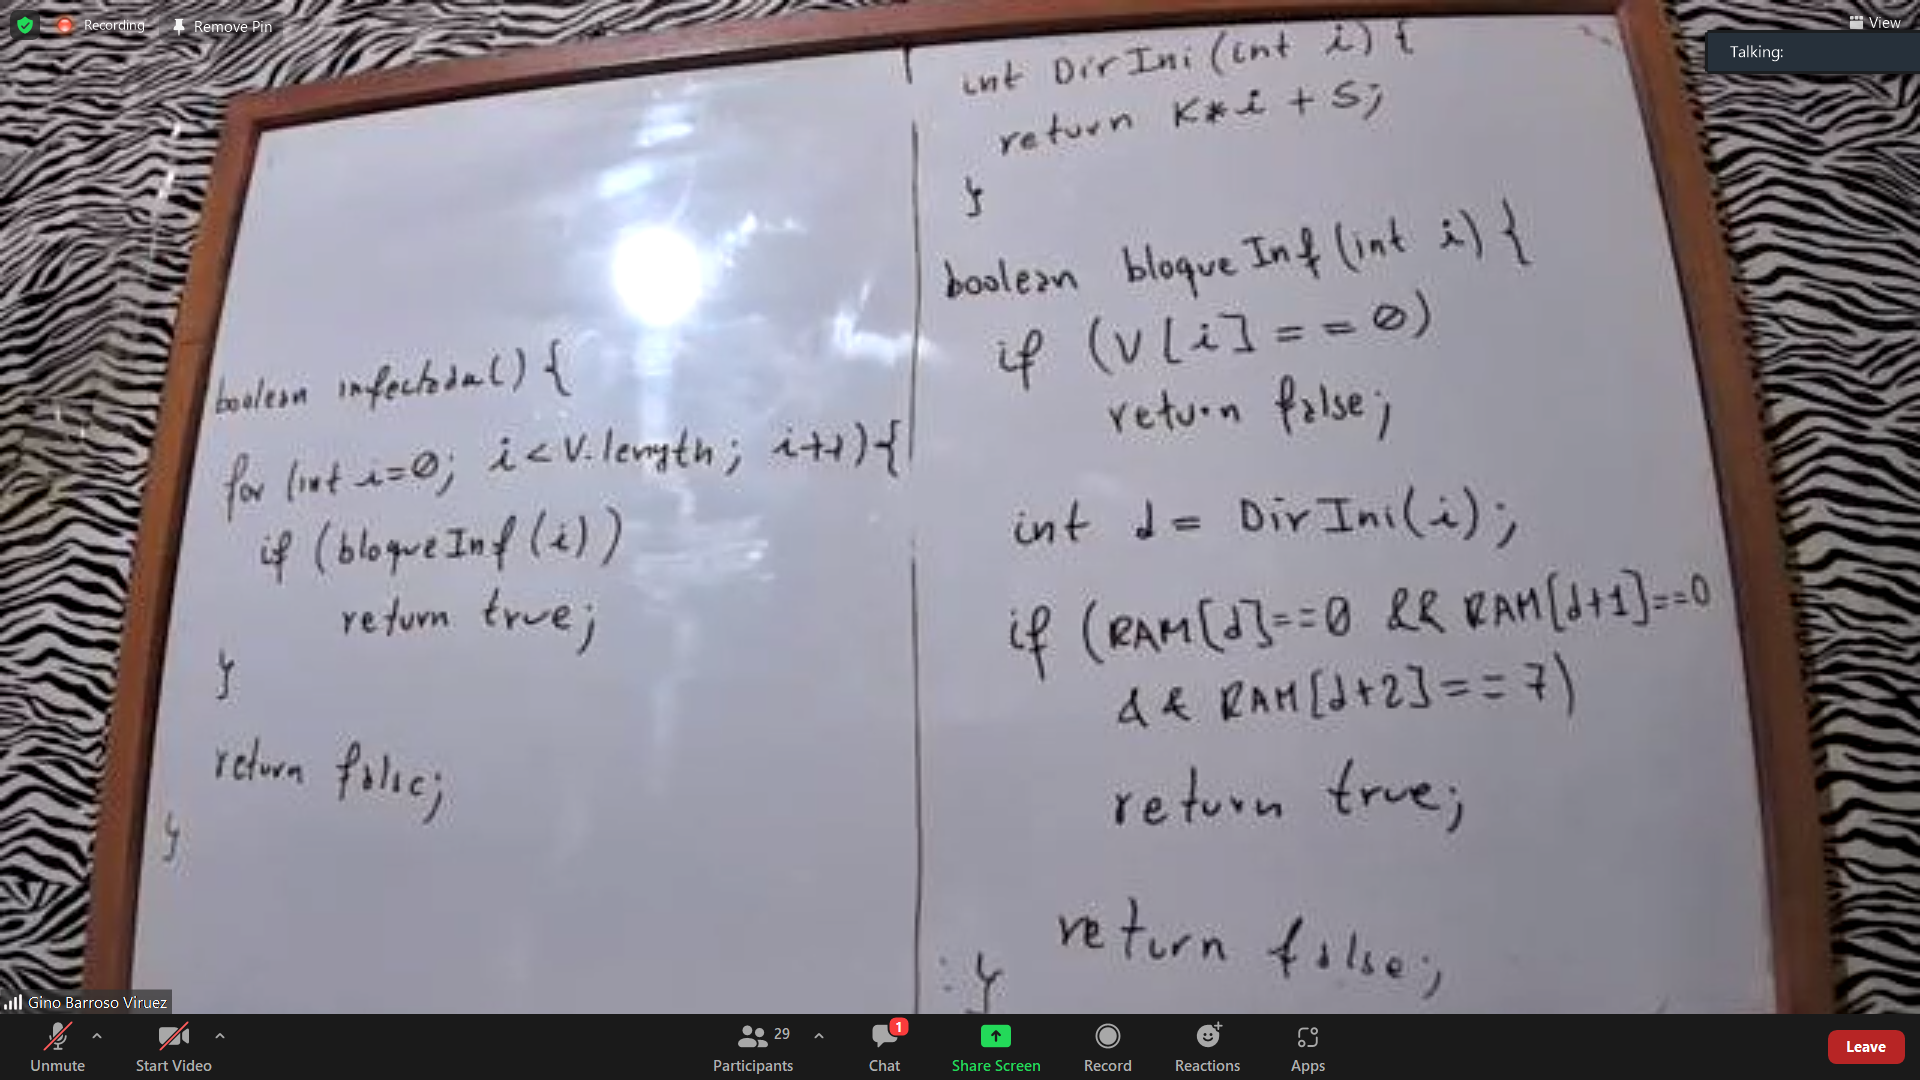 Recording
Remove Pin
View
Talking:
boolean infectada() {
for (int i=0; i<V.length; i++) {
if (bloqueInf(i))
return true;
}
return false;
}
int DirIni(int i) {
return K*i + S;
}
boolean bloqueInf(int i) {
if (V[i] == 0)
return false;
int d = DirIni(i);
if (RAM[d]==0 && RAM[d+1]==0
&& RAM[d+2] == 7)
return true;
return false;
}
Gino Barroso Viruez
Unmute
Start Video
29
Participants
1
Chat
Share Screen
Record
Reactions
Apps
Leave